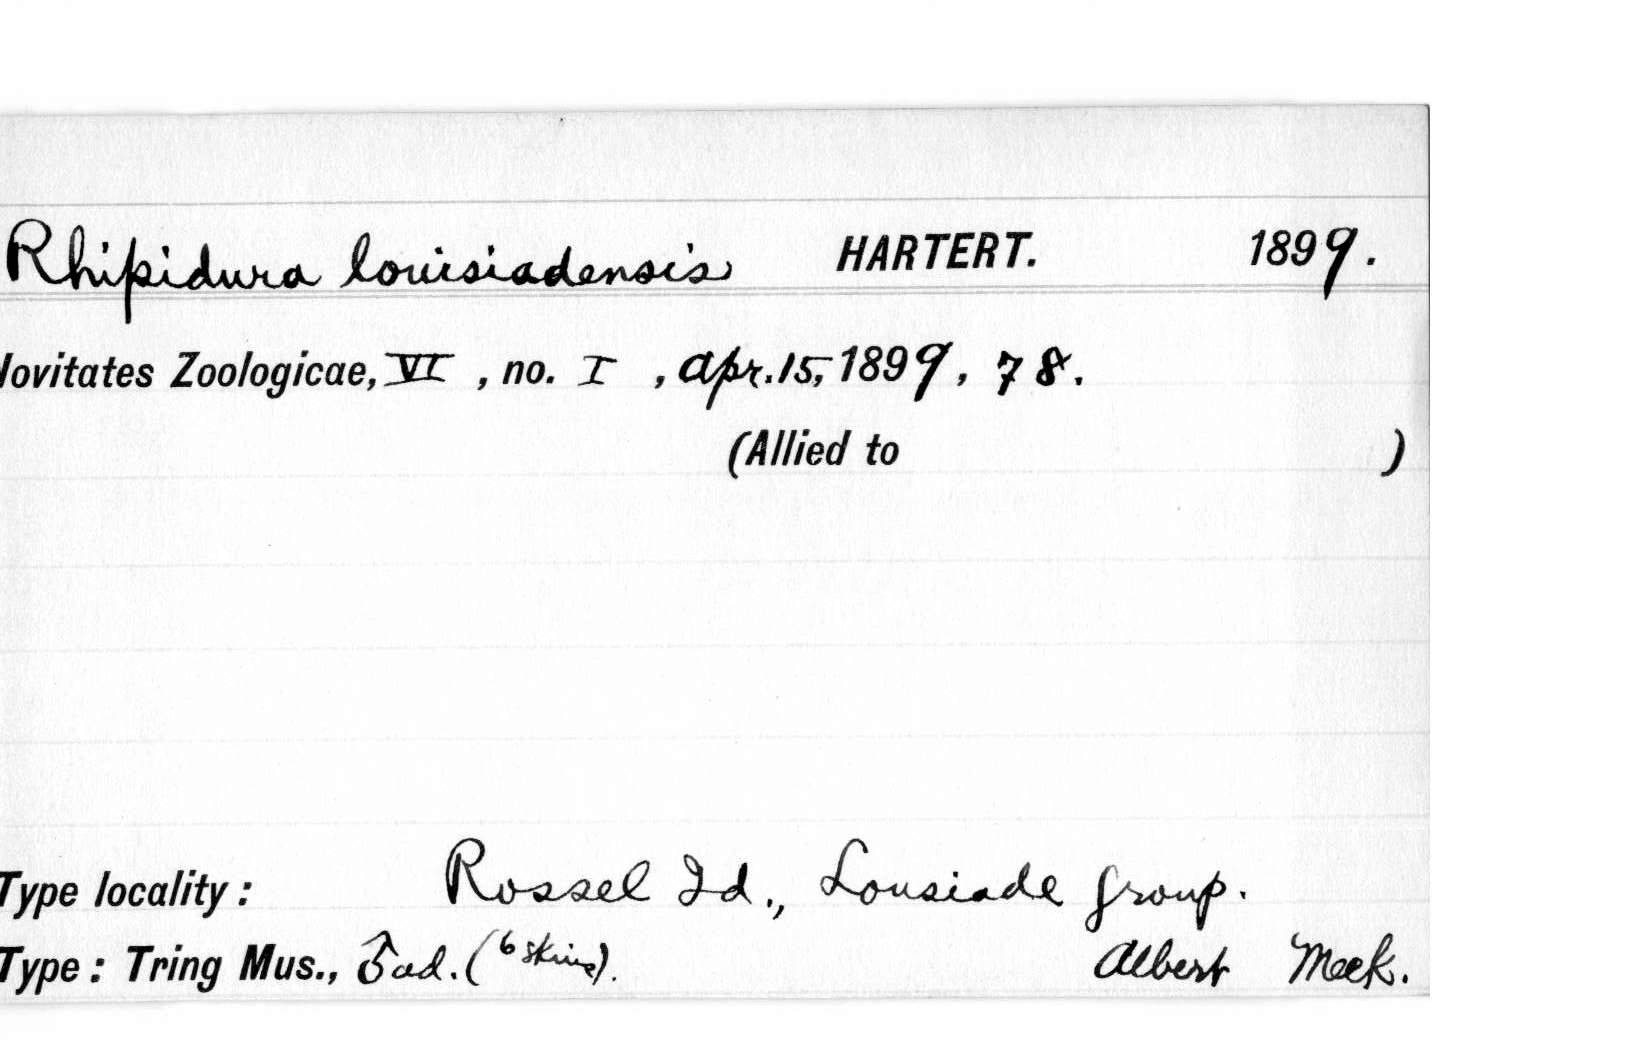 Rhipidura louisiadensis HARTERT. 1899.
Novitates Zoologicae, VI, no. I, Apr. 15, 1899, 78.
(Allied to )
Type locality: Rossel Id., Lousiade Group.
Type: Tring Mus., ♂ ad. (6 skins). Albert Meek.